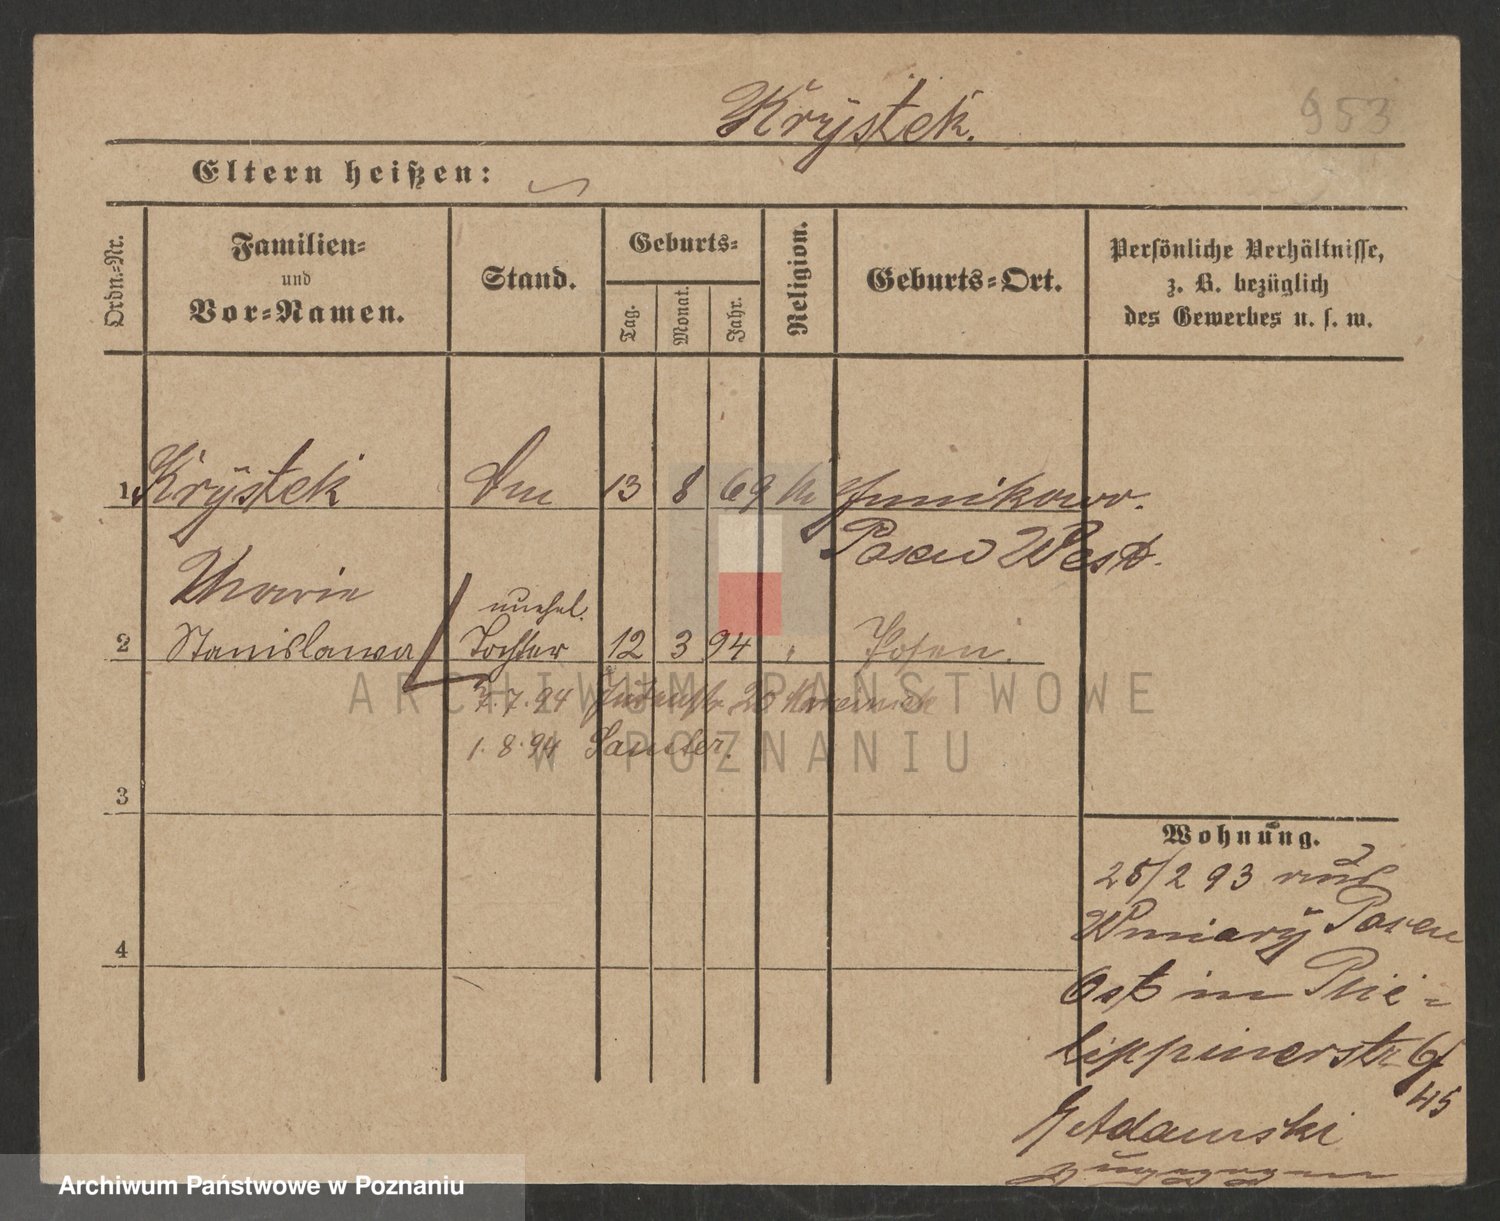 Krÿstek.
953
Eltern heißen:
Ordn.-Nr.
Familien-
und
Vor-Namen.
Stand.
Geburts-
Tag.
Monat.
Jahr.
Religion.
Geburts-Ort.
Persönliche Verhältnisse,
z. B. bezüglich
des Gewerbes u. s. w.
1 Krÿstek 13 8 69 Junikowo.
Posen West.
Marie
unehel.
2 Stanislawa Tochter 12 3 94 " Posen.
2.7.94 Judenstr. 28
1.8.94 Samter.
3
4
Wohnung.
25/2 93 aus
Winiarÿ Posen
Ost in Phi-
lippinerstr. 6
45
Adamski
zugezogen
ARCHIWUM PAŃSTWOWE
W POZNANIU
Archiwum Państwowe w Poznaniu